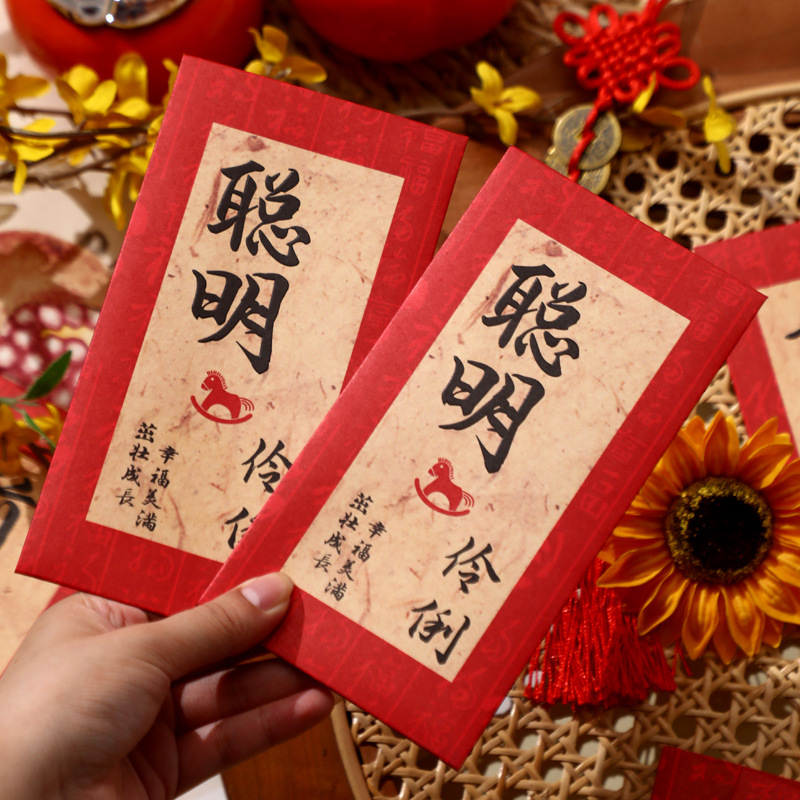 聪明
伶
幸福美滿
茁壮成長
聪明
伶俐
幸福美滿
茁壮成長